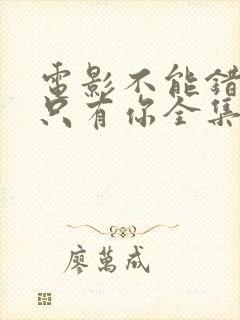 電影不能錯
只有你全集
廖萬成